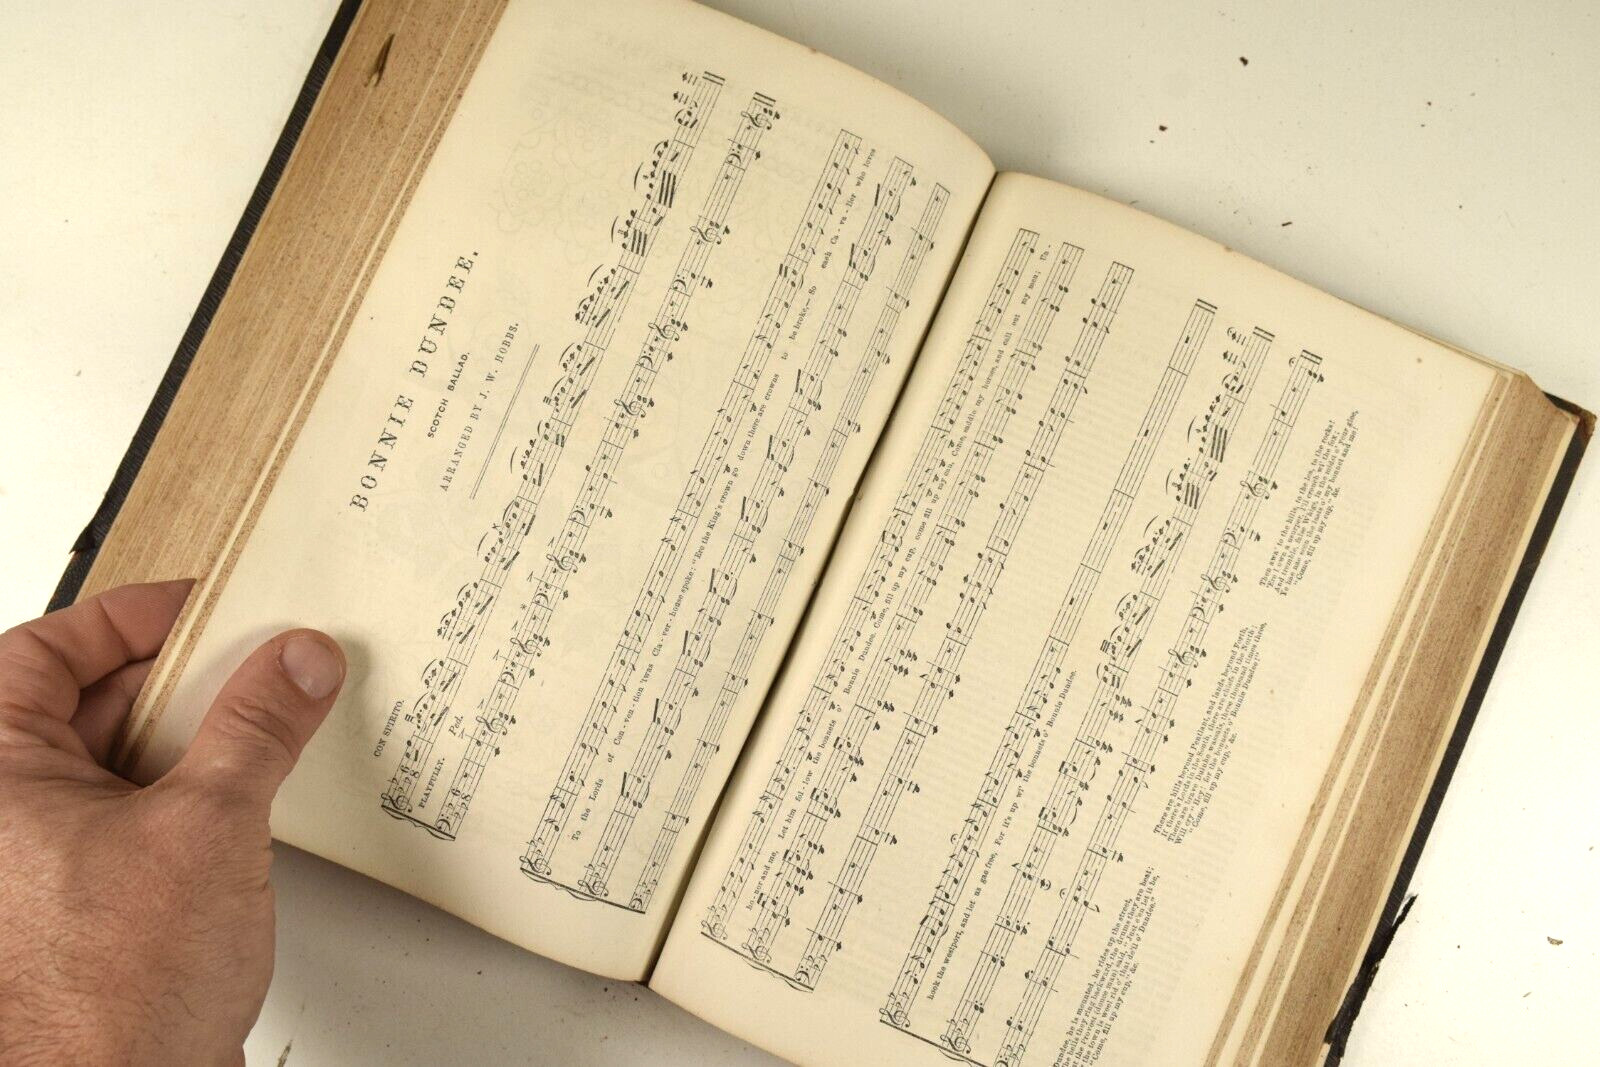 BONNIE DUNDEE.
SCOTCH BALLAD.
ARRANGED BY J. W. HOBBS.
CON SPIRITO.
PLAYFULLY.
Ped.
To the Lords of Con - ven - tion 'twas Cla - ver - house spoke: "Ere the King's crown go down there are crowns to be broke,— So each Ca - va - lier who loves
ho - nor and me, Let him fol - low the bonnets o' Bonnie Dundee. Come, fill up my cup, come fill up my can, Come, saddle my horses, and call out my men; Un -
hook the westport, and let us gae free, For it's up wi' the bonnets o' Bonnie Dundee.
Dundee, he is mounted, he rides up the street,
The bells they ring backward, the drums they are beat;
the Provost (douce man) said, "Just e'en let it be,
the town is weel rid o' that de'il o' Dundee."
"Come, fill up my cup," &c.
There are hills beyond Pentland, and lands beyond Forth,
If there's Lords in the South, there are chiefs in the North;
There are brave Duinhe wassals, three thousand times three,
Will cry "Hey! for the bonnets o' Bonnie Dundee!"
"Come, fill up my cup," &c.
Then awa' to the hills, to the lea, to the rocks!
Ere I own a usurper, I'll crouch wi' the fox;
And tremble, false Whigs, in the midst o' your glee,
Ye hae nae seen the last o' my bonnet and me!
"Come, fill up my cup," &c.